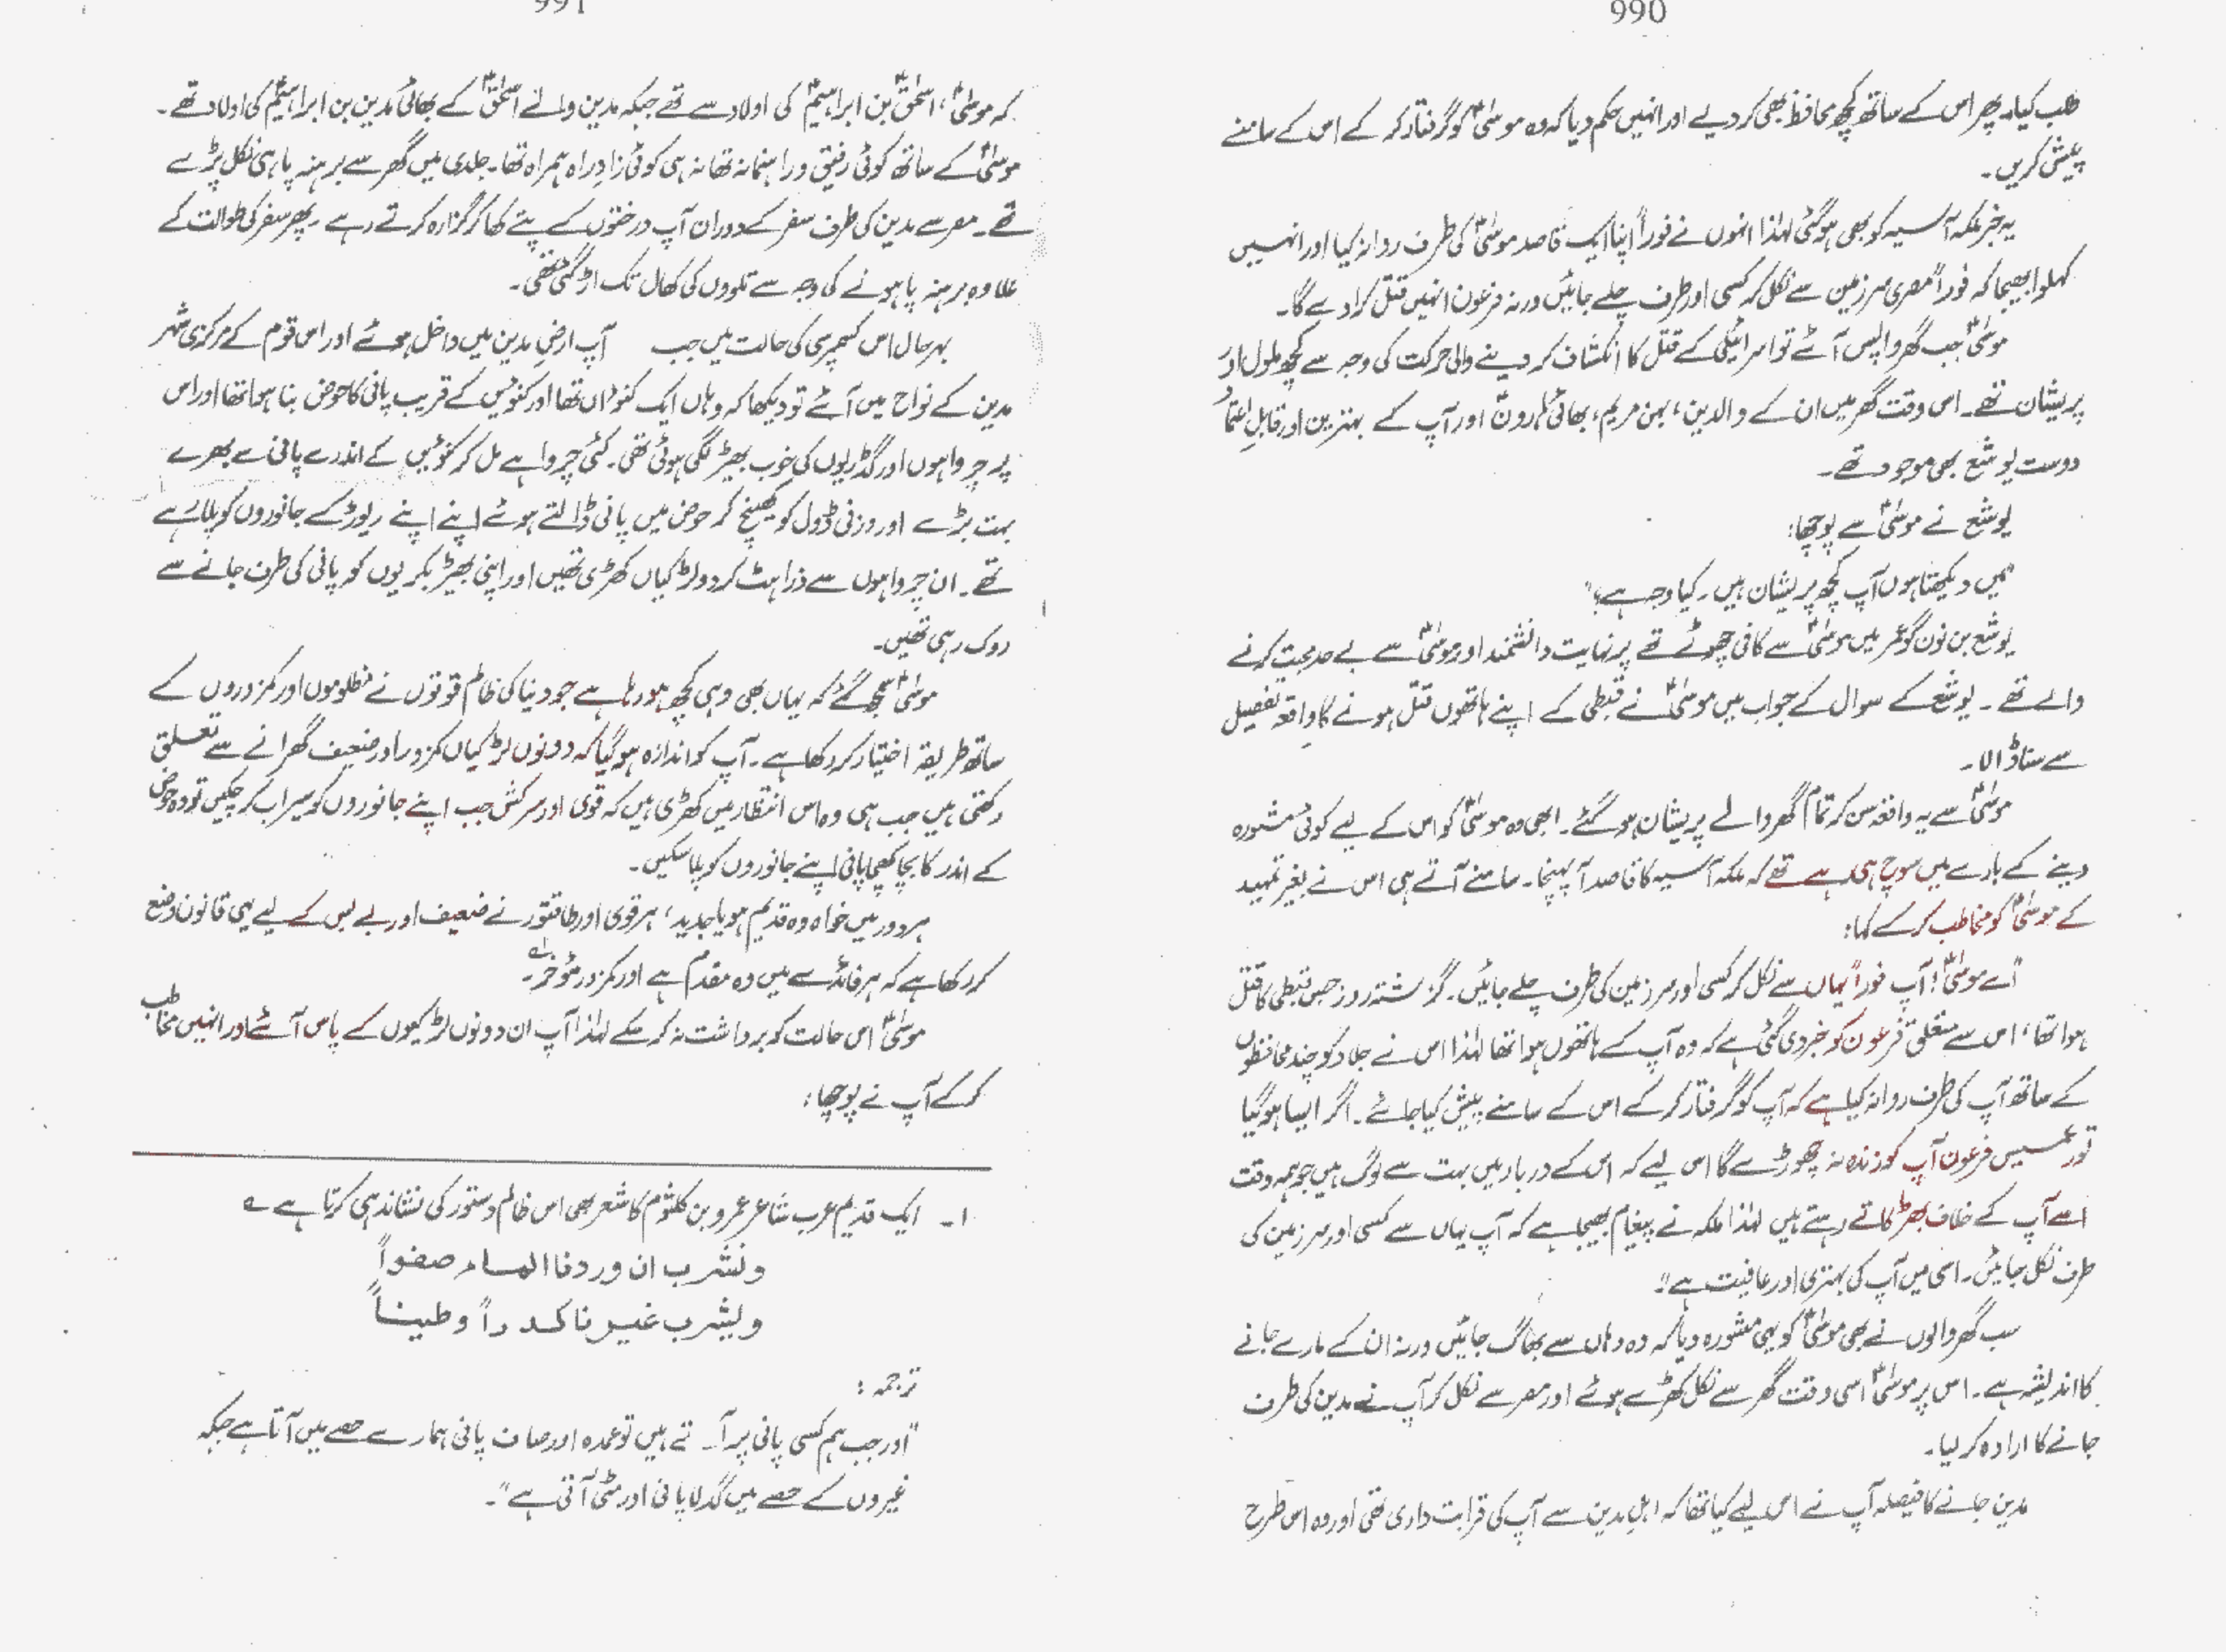 990
طلب کیا۔ پھر اس کے ساتھ کچھ محافظ بھی کر دیے اور انہیں حکم دیا کہ وہ موسیٰؑ کو گرفتار کر کے اس کے سامنے
پیش کریں۔
یہ خبر ملکہ آسیہ کو بھی ہو گئی لہٰذا انہوں نے فوراً اپنا ایک قاصد موسیٰؑ کی طرف روانہ کیا اور انہیں
کہلوا بھیجا کہ فوراً مصری سرزمین سے نکل کر کسی اور طرف چلے جائیں ورنہ فرعون انہیں قتل کرا دے گا۔
موسیٰؑ جب گھر واپس آئے تو اسرائیلی کے قتل کا انکشاف کر دینے والی حرکت کی وجہ سے کچھ ملول اور
پریشان تھے۔ اس وقت گھر میں ان کے والدین، بہن مریم، بھائی ہارونؑ اور آپ کے بہترین اور قابلِ اعتماد
دوست یوشع بھی موجود تھے۔
یوشع نے موسیٰؑ سے پوچھا:
"میں دیکھتا ہوں آپ کچھ پریشان ہیں۔ کیا وجہ ہے؟"
یوشع بن نون گو عمر میں موسیٰؑ سے کافی چھوٹے تھے پر نہایت دانشمند اور موسیٰؑ سے بے حد محبت کرنے
والے تھے۔ یوشع کے سوال کے جواب میں موسیٰؑ نے قبطی کے اپنے ہاتھوں قتل ہونے کا واقعہ تفصیل
سے سنا ڈالا۔
موسیٰؑ سے یہ واقعہ سن کر تمام گھر والے پریشان ہو گئے۔ ابھی وہ موسیٰؑ کو اس کے لیے کوئی مشورہ
دینے کے بارے میں سوچ ہی رہے تھے کہ ملکہ آسیہ کا قاصد آ پہنچا۔ سامنے آتے ہی اس نے بغیر تمہید
کے موسیٰؑ کو مخاطب کر کے کہا:
"اے موسیٰؑ! آپ فوراً یہاں سے نکل کر کسی اور سرزمین کی طرف چلے جائیں۔ گزشتہ روز جس قبطی کا قتل
ہوا تھا، اس سے متعلق فرعون کو خبر دی گئی ہے کہ وہ آپ کے ہاتھوں ہوا تھا لہٰذا اس نے جلاد کو چند محافظوں
کے ساتھ آپ کی طرف روانہ کیا ہے کہ آپ کو گرفتار کر کے اس کے سامنے پیش کیا جائے۔ اگر ایسا ہو گیا
تو رعمسیس فرعون آپ کو زندہ نہ چھوڑے گا اس لیے کہ اس کے دربار میں بہت سے لوگ ہیں جو ہمہ وقت
اسے آپ کے خلاف بھڑکاتے رہتے ہیں لہٰذا ملکہ نے پیغام بھیجا ہے کہ آپ یہاں سے کسی اور سرزمین کی
طرف نکل جائیں۔ اسی میں آپ کی بہتری اور عافیت ہے"۔
سب گھر والوں نے بھی موسیٰؑ کو یہی مشورہ دیا کہ وہ وہاں سے بھاگ جائیں ورنہ ان کے مارے جانے
کا اندیشہ ہے۔ اس پر موسیٰؑ اسی وقت گھر سے نکل کھڑے ہوئے اور مصر سے نکل کر آپ نے مدین کی طرف
جانے کا ارادہ کر لیا۔
مدین جانے کا فیصلہ آپ نے اس لیے کیا تھا کہ اہلِ مدین سے آپ کی قرابت داری تھی اور وہ اس طرح
991
کہ موسیٰؑ، اسحٰقؑ بن ابراہیمؑ کی اولاد سے تھے جبکہ مدین والے اسحٰقؑ کے بھائی مدین بن ابراہیمؑ کی اولاد تھے۔
موسیٰؑ کے ساتھ کوئی رفیق و راہنما نہ تھا نہ ہی کوئی زادِ راہ ہمراہ تھا۔ جلدی میں گھر سے برہنہ پا ہی نکل پڑے
تھے۔ مصر سے مدین کی طرف سفر کے دوران آپ درختوں کے پتے کھا کر گزارہ کرتے رہے۔ پھر سفر کی طوالت کے
علاوہ برہنہ پا ہونے کی وجہ سے تلووں کی کھال تک اڑ گئی تھی۔
بہرحال اس کسمپرسی کی حالت میں جب آپ ارضِ مدین میں داخل ہوئے اور اس قوم کے مرکزی شہر
مدین کے نواح میں آئے تو دیکھا کہ وہاں ایک کنواں تھا اور کنوئیں کے قریب پانی کا حوض بنا ہوا تھا اور اس
پر چرواہوں اور گڈریوں کی خوب بھیڑ لگی ہوئی تھی۔ کئی چرواہے مل کر کنوئیں کے اندر سے پانی سے بھرے
بہت بڑے اور وزنی ڈول کو کھینچ کر حوض میں پانی ڈالتے ہوئے اپنے اپنے ریوڑ کے جانوروں کو پلا رہے
تھے۔ ان چرواہوں سے ذرا ہٹ کر دو لڑکیاں کھڑی تھیں اور اپنی بھیڑ بکریوں کو پانی کی طرف جانے سے
روک رہی تھیں۔
موسیٰؑ سمجھ گئے کہ یہاں بھی وہی کچھ ہو رہا ہے جو دنیا کی ظالم قوتوں نے مظلوموں اور کمزوروں کے
ساتھ طریقہ اختیار کر رکھا ہے۔ آپ کو اندازہ ہو گیا کہ دونوں لڑکیاں کمزور اور ضعیف گھرانے سے تعلق
رکھتی ہیں جب ہی وہ اس انتظار میں کھڑی ہیں کہ قوی اور سرکش جب اپنے جانوروں کو سیراب کر چکیں تو وہ حوض
کے اندر کا بچا کھچا پانی اپنے جانوروں کو پلا سکیں۔
ہر دور میں خواہ وہ قدیم ہو یا جدید، ہر قوی اور طاقتور نے ضعیف اور بے بس کے لیے یہی قانون وضع
کر رکھا ہے کہ ہر فائدے میں وہ مقدم ہے اور کمزور مؤخر۔ ؎۱
موسیٰؑ اس حالت کو برداشت نہ کر سکے لہٰذا آپ ان دونوں لڑکیوں کے پاس آئے اور انہیں مخاطب
کر کے آپ نے پوچھا:
۱۔ ایک قدیم عرب شاعر عمرو بن کلثوم کا شعر بھی اس ظالم دستور کی نشاندہی کرتا ہے ؎
ونشرب ان وردنا الماء صفواً
ويشرب غيرنا كدراً وطيناً
ترجمہ:
"اور جب ہم کسی پانی پر آتے ہیں تو عمدہ اور صاف پانی ہمارے حصے میں آتا ہے جبکہ
غیروں کے حصے میں گدلا پانی اور مٹی آتی ہے"۔